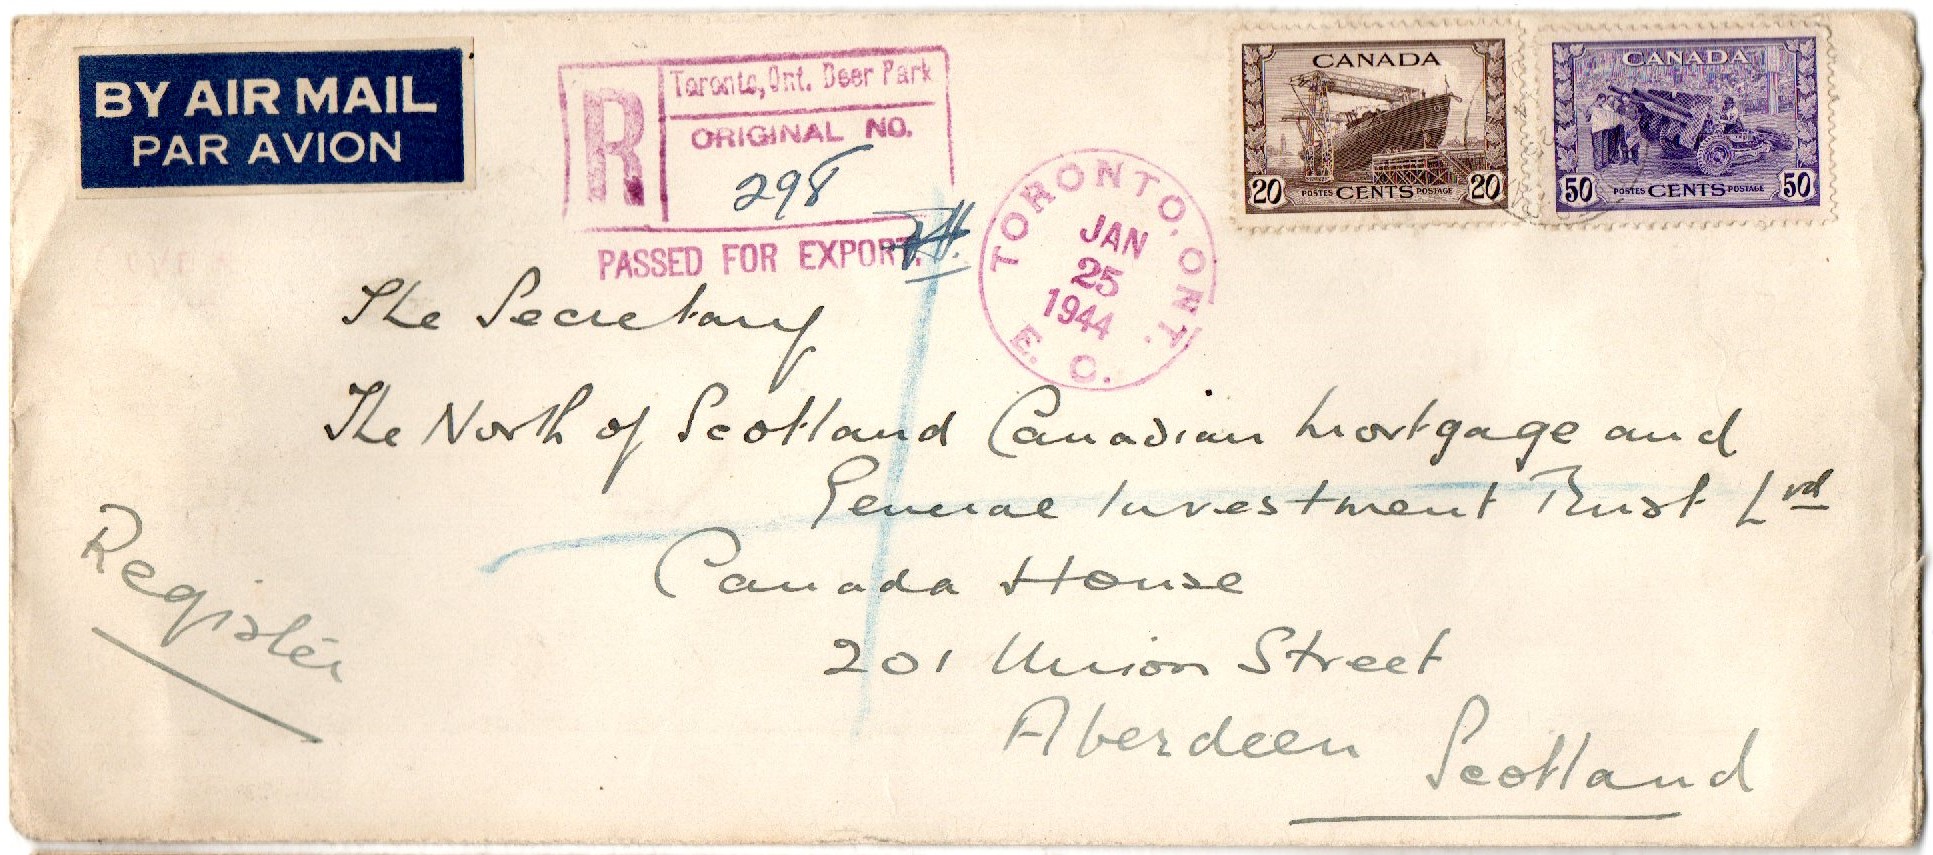 BY AIR MAIL
PAR AVION
R
Toronto, Ont. Deer Park
ORIGINAL NO.
298
PASSED FOR EXPORT.
TORONTO, ONT.
JAN
25
1944
CANADA
20 POSTES CENTS POSTAGE 20
CANADA
50 POSTES CENTS POSTAGE 50
The Secretary
The North of Scotland Canadian Mortgage and
General Investment Trust Ltd
Canada House
201 Union Street
Aberdeen
Scotland
Register